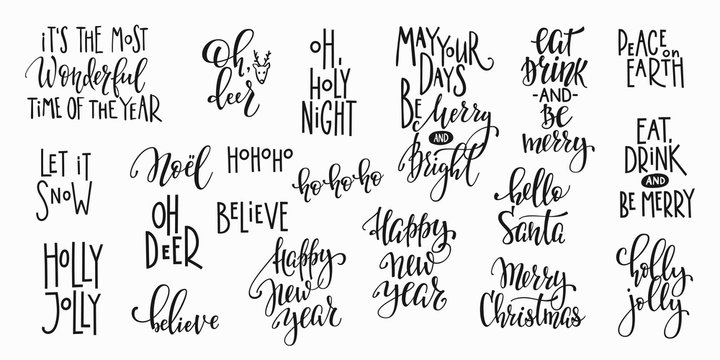 iT'S THE MOST
Wonderful
TiME OF THE YEAR
Oh,
deer
OH,
HOLY
NiGHT
MAY YOUR
DAYS
BE Merry
AND
Bright
Eat
Drink
-AND-
BE
merry
PEACE on
EARTH
LET iT
SNOW
Noël
HOHOHO
hohoho
EAT,
DRiNK
AND
BE MERRY
OH
DEER
BELiEVE
hello
Santa
HOLLY
JOLLY
believe
Happy
New
year
Happy
new
year
Merry
Christmas
holly
jolly